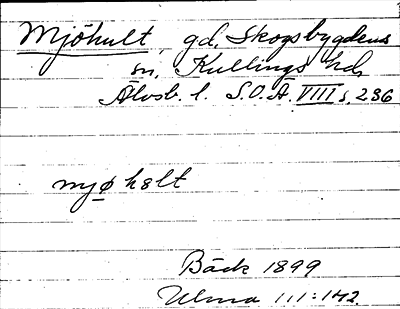 Mjöhult, gd, Skogsbygdens
sn, Kullings hd,
Älvsb. l. S.O.Ä. VIII s. 236
mjø hult
Bäck 1899
Ulma 111:142.